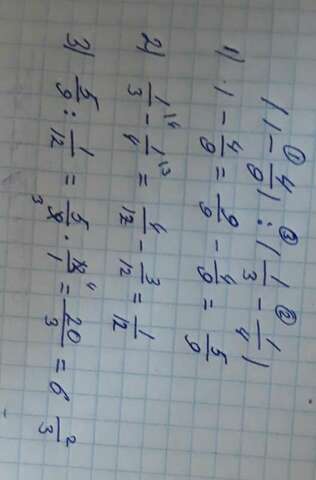 (1 - 4/9) : (1/3 - 1/4)
① ③ ②
1) 1 - 4/9 = 9/9 - 4/9 = 5/9
2) 1/3 ⁴ - 1/4 ³ = 4/12 - 3/12 = 1/12
3) 5/9 : 1/12 = 5/9 ₃ · 12 ⁴/1 = 20/3 = 6 2/3